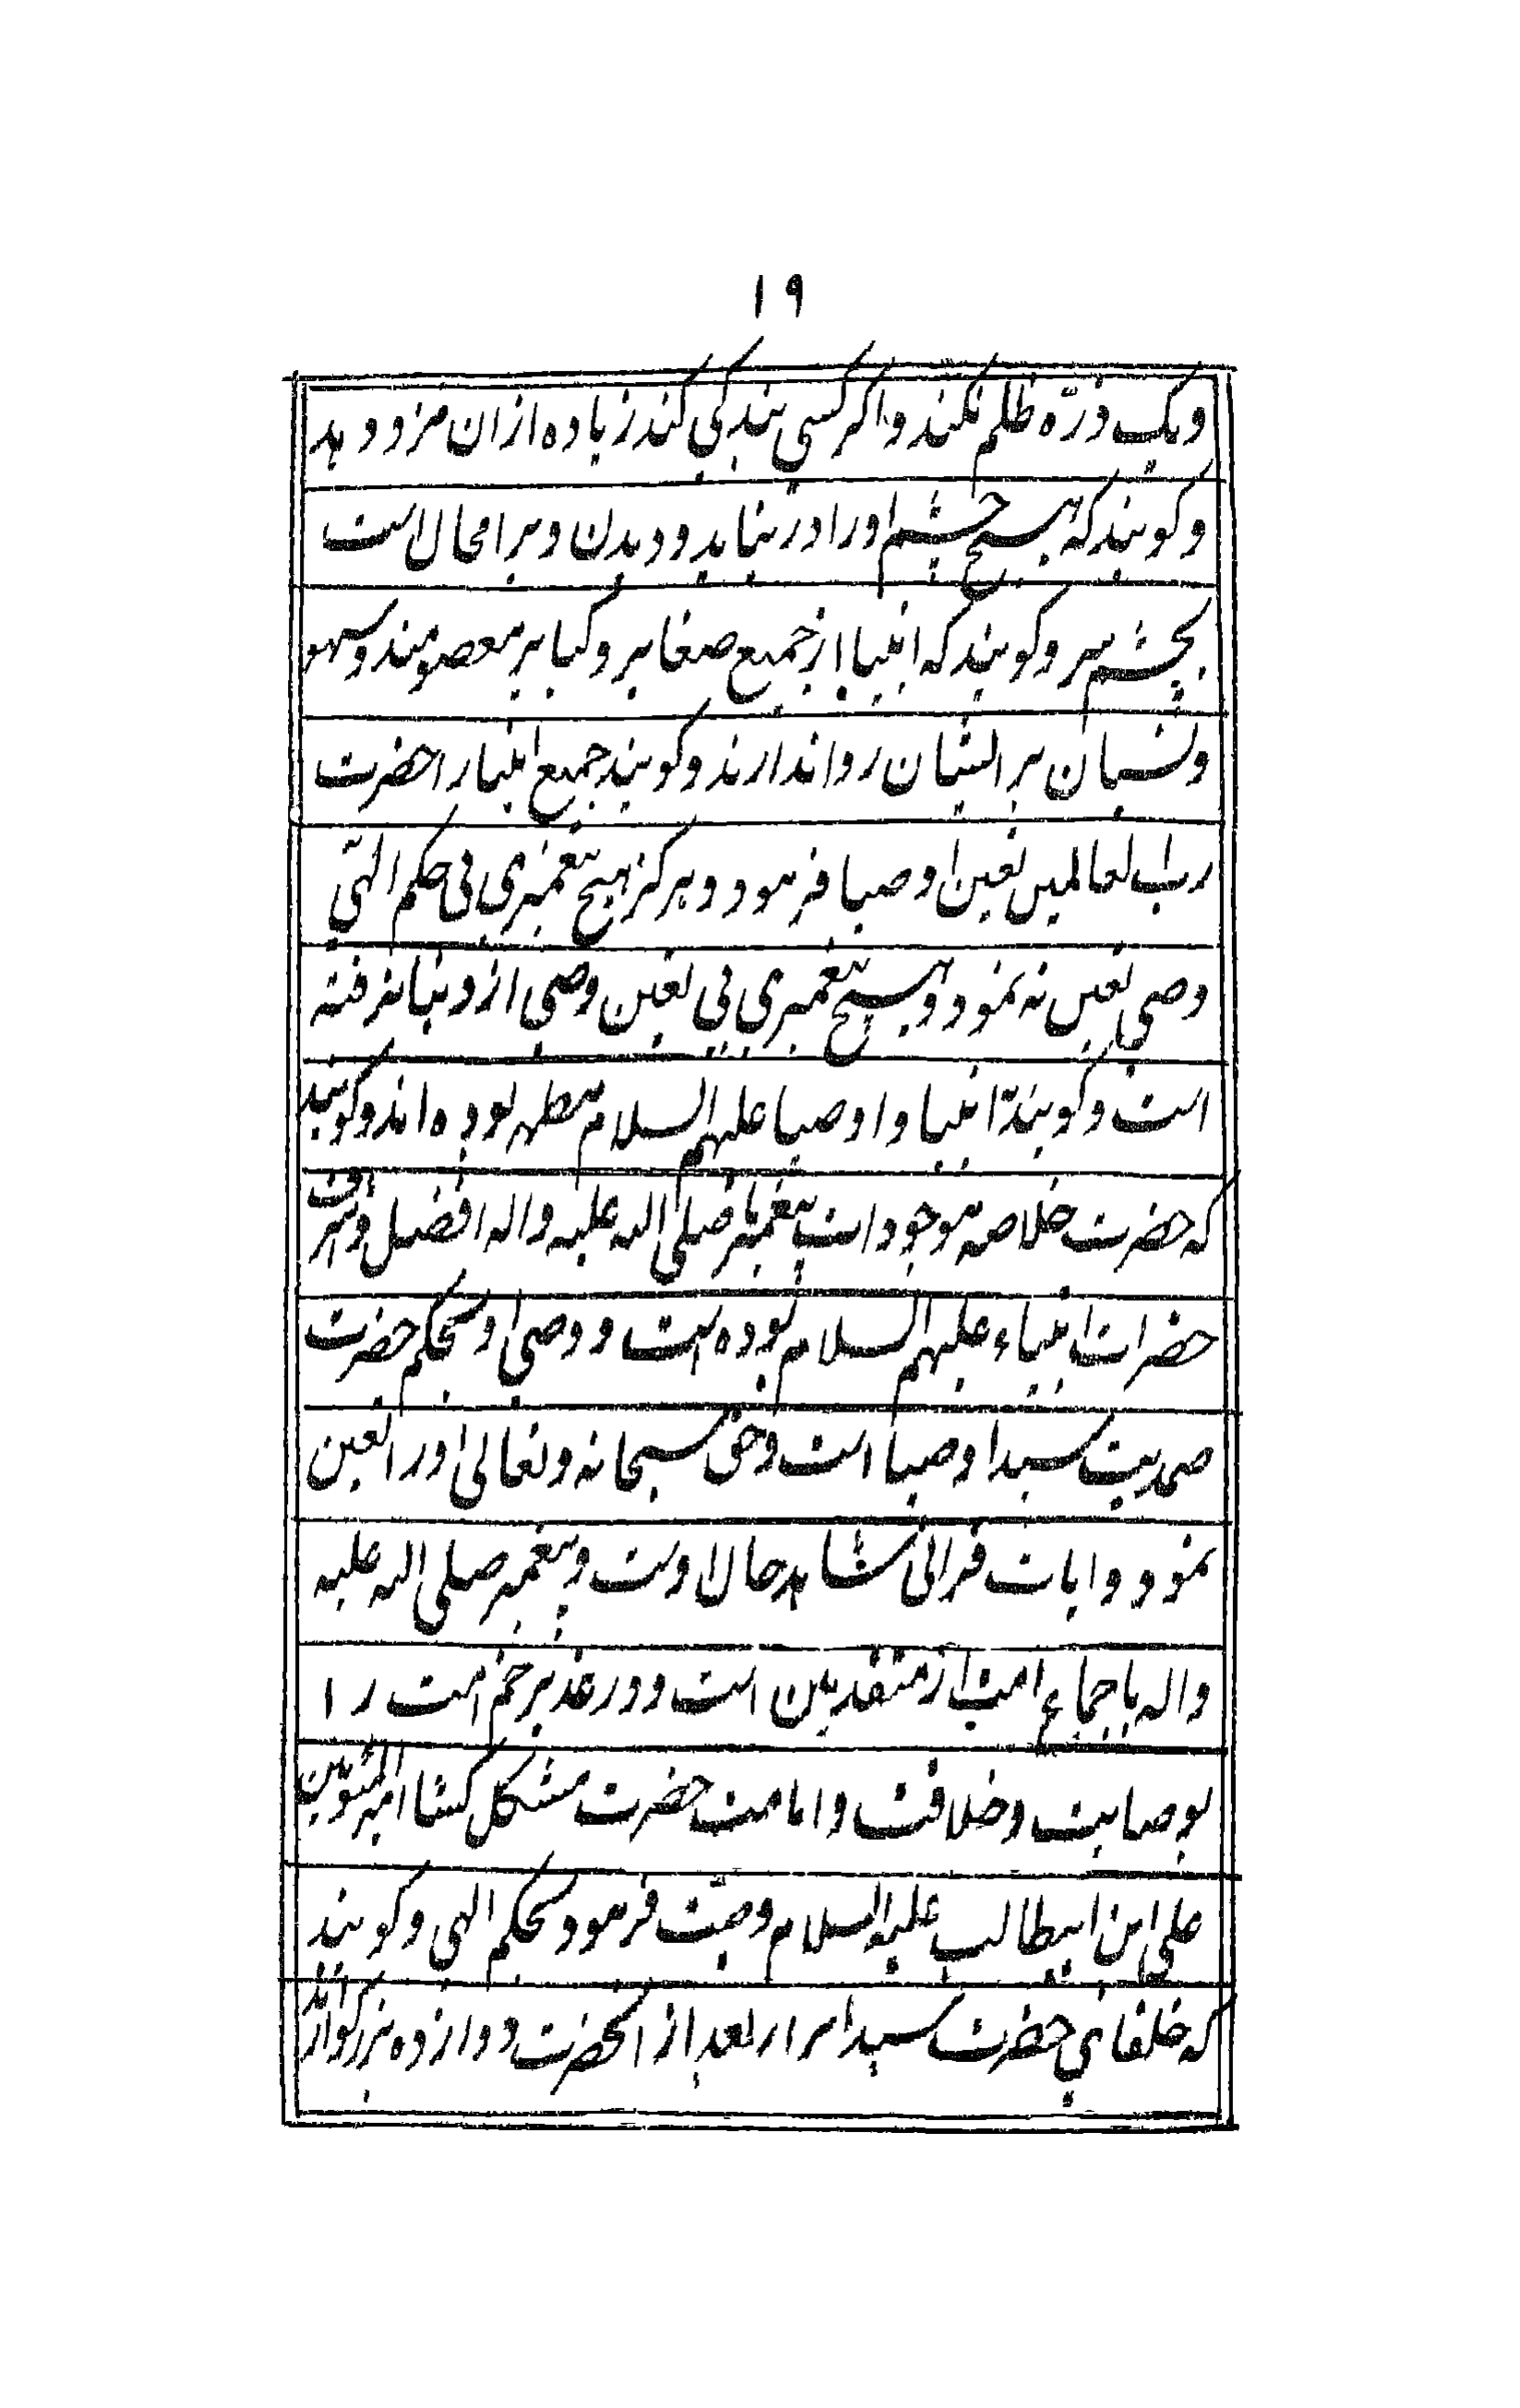 ۱۹
ویک ذرّه ظلم نکند و اکر کسی بندکی کند زیاده از ان مزد دهد
و کویند که هیچ چشم او را در نیابد و دیدن ویرا محال است
بچشم سر و کویند که انبیا از جمیع صغایر و کبایر معصومند و سهو
و نسیان بر ایشان روا ندارند و کویند جمیع انبیا را حضرت
رب العالمین تعین اوصیا فرمود و هرکز هیچ پیغمبری بی حکم الهی
وصی تعین نه نمود و هیچ پیغمبری بی تعین وصی از دنیا نرفته
است و کویند انبیا و اوصیا علیهم السلام مطهر بوده اند و کویند
که حضرت خلاصه موجودات پیغمبر ما صلی الله علیه واله افضل و اشرف
حضرات انبیاء علیهم السلام بوده است و وصی او بحکم حضرت
صمدیت سید اوصیا است و حق سبحانه و تعالی او را تعین
نمود و ایات قرانی شاهد حال اوست و پیغمبر صلی الله علیه
واله باجماع امت از متقدمین است و در غدیر خم امت را
بوصایت و خلافت و امامت حضرت مشکل کشا امیر المؤمنین
علی ابن ابیطالب علیه السلام وصیّت فرمود بحکم الهی و کویند
که خلفای حضرت سید ابرار بعد از انحضرت دوازده بزرکوارانند